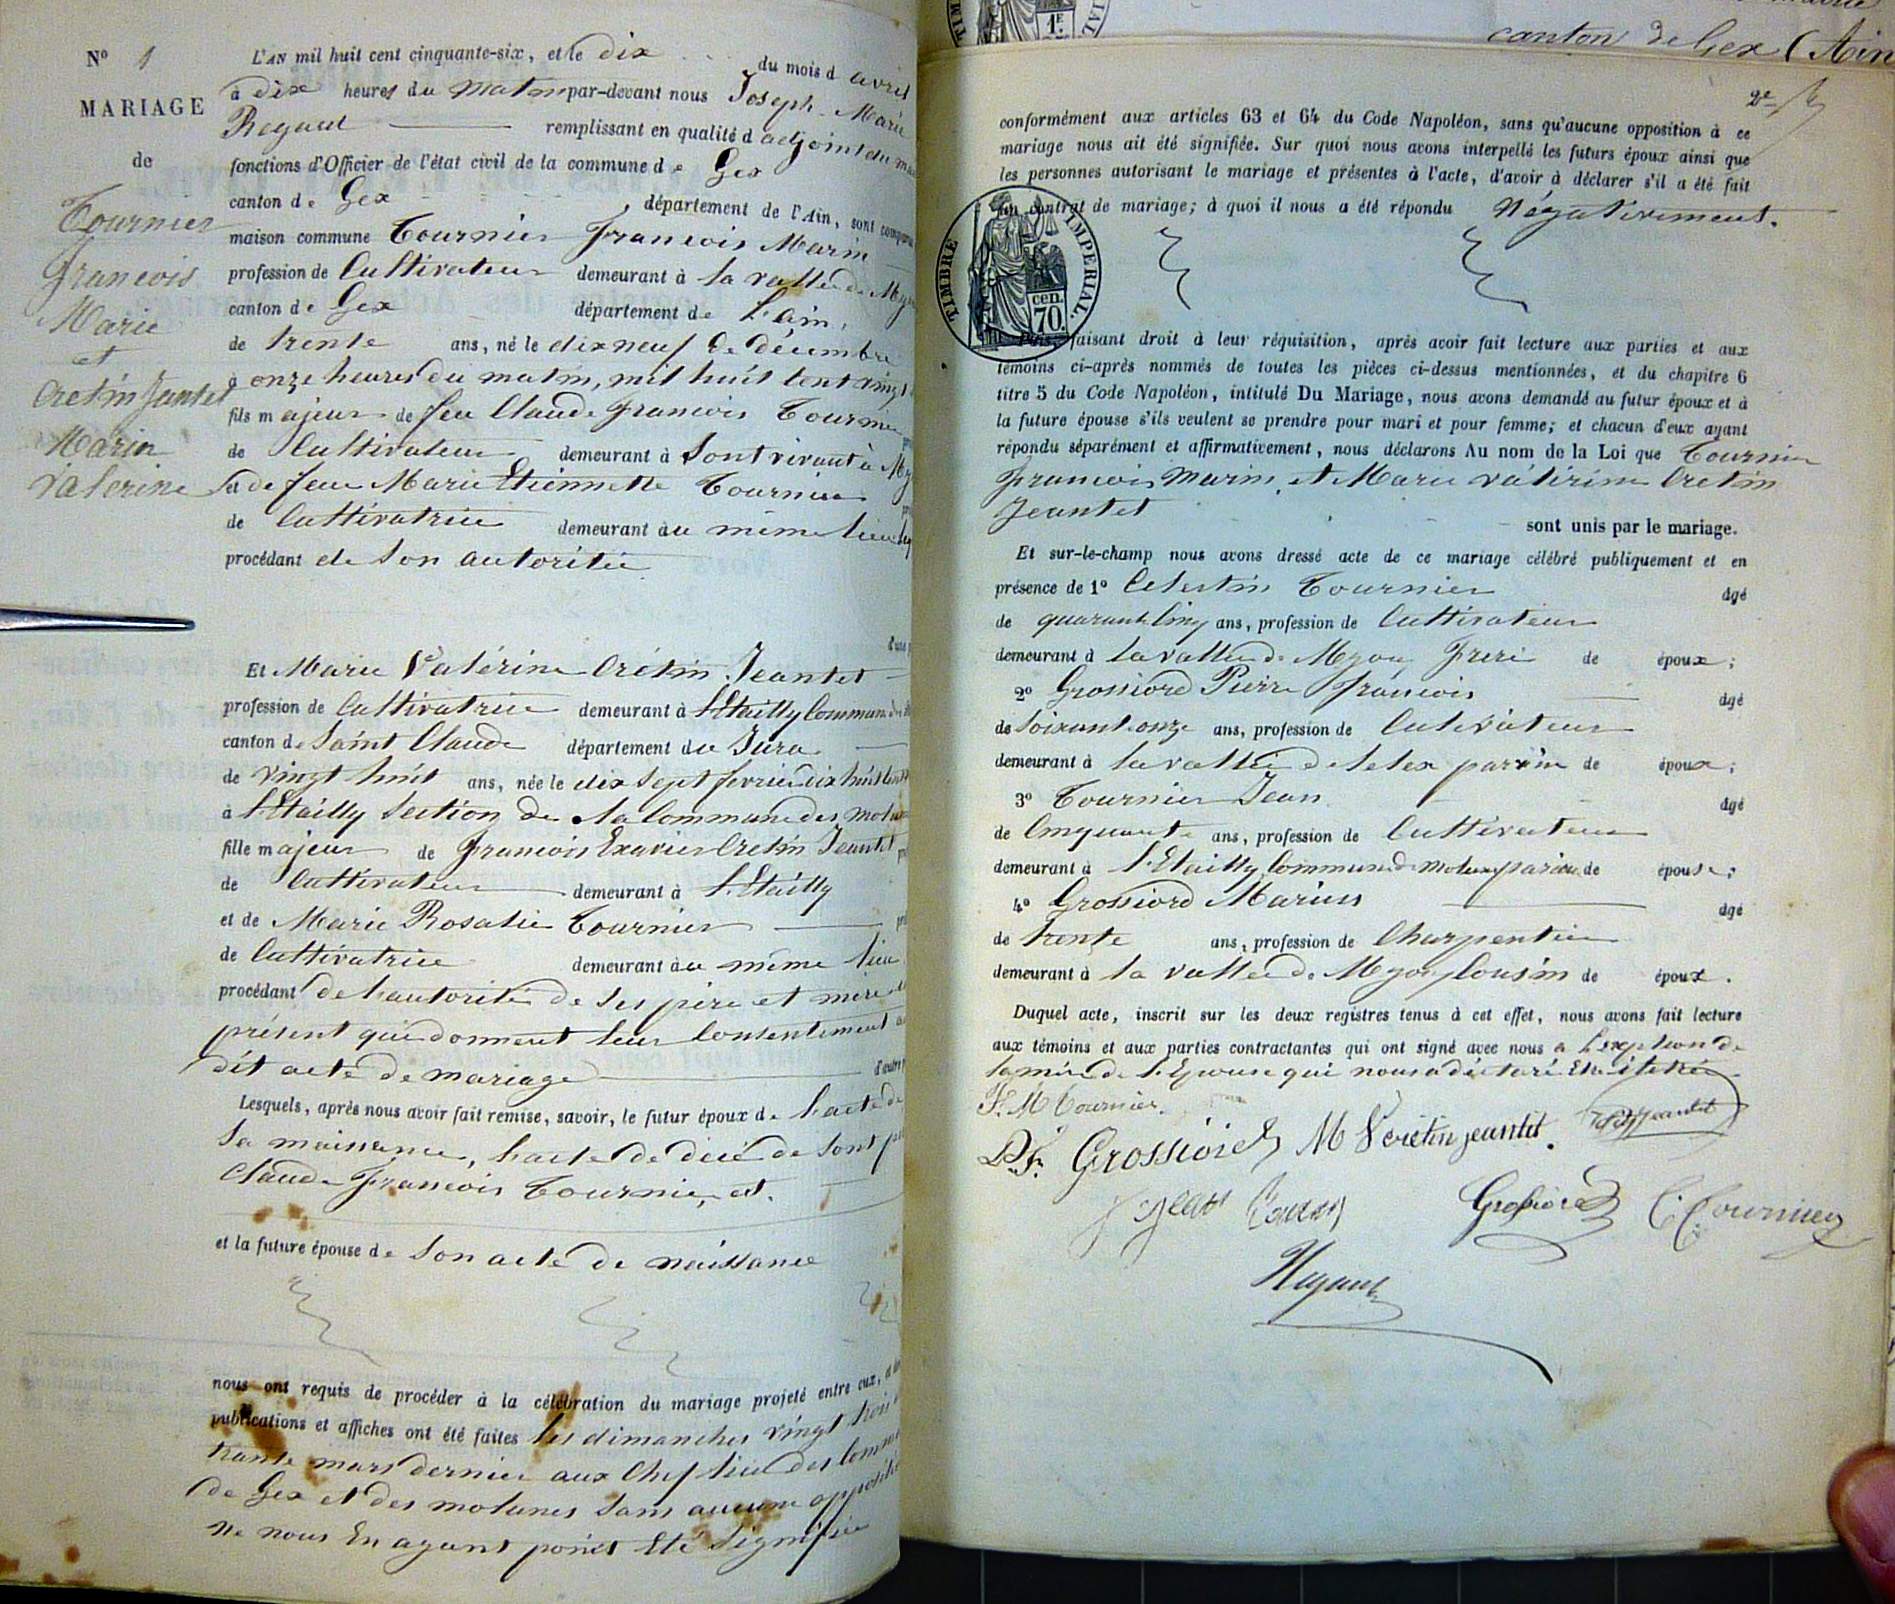 N° 1
MARIAGE
de
Tournier
François
Marie
et
Cretin Jeantet
Marin
Valerine
L'AN mil huit cent cinquante-six, et le dix du mois d avril
à dix heures du matin par-devant nous Joseph Marie
Regaud remplissant en qualité d adjoint du
fonctions d'Officier de l'état civil de la commune de Gex
canton de Gex, département de l'Ain, sont
maison commune Tournier François Marin
profession de Cultivateur demeurant à la vallée de
canton de Gex département de l'ain,
de trente ans, né le dix neuf de décembre
à onze heures du matin, mil huit cent vingt
fils majeur de feu Claude François Tournier
de Cultivateur demeurant à Sont vivant à
et de feue Marie Etiennette Tournier
de Cultivatrice demeurant au même lieu
procédant de son autoritée
Et Marie Valérine Crétin Jeantet
profession de Cultivatrice demeurant à l'Etailly Commune des
canton de Saint Claude département du Jura
de vingt huit ans, née le dix sept fevrier dix huit cent
à l'Etailly Section de la Commune des
fille majeur de François Exavier Cretin Jeantet
de Cultivateur demeurant à l'Etailly
et de Marie Rosalie Tournier
de Cultivatrice demeurant au même lieu
procédant de l'autorité de ses père et mère
présent qui donnent leur Consentement
dit acte de mariage
Lesquels, après nous avoir fait remise, savoir, le futur époux de l'acte de
sa naissance, l'acte de décé de Sont
Claude François Tournier, et.
et la future épouse de Son acte de naissance
nous ont requis de procéder à la célébration du mariage projeté entre eux,
publications et affiches ont été faites les dimanches vingt trois
trente mars dernier aux Chef lieu des
de Gex et des molunes Sans aucune
ne nous En ayant point Eté Signifiée
canton de Gex (Ain
2e
conformément aux articles 63 et 64 du Code Napoléon, sans qu'aucune opposition à ce
mariage nous ait été signifiée. Sur quoi nous avons interpellé les futurs époux ainsi que
les personnes autorisant le mariage et présentes à l'acte, d'avoir à déclarer s'il a été fait
un contrat de mariage; à quoi il nous a été répondu Négativement.
TIMBRE IMPERIAL.
cen. 70.
Puis, faisant droit à leur réquisition, après avoir fait lecture aux parties et aux
témoins ci-après nommés de toutes les pièces ci-dessus mentionnées, et du chapitre 6
titre 5 du Code Napoléon, intitulé Du Mariage, nous avons demandé au futur époux et à
la future épouse s'ils veulent se prendre pour mari et pour femme; et chacun d'eux ayant
répondu séparément et affirmativement, nous déclarons Au nom de la Loi que Tournier
François Marin, et Marie valérine Cretin
Jeantet
sont unis par le mariage.
Et sur-le-champ nous avons dressé acte de ce mariage célébré publiquement et en
présence de 1° Celestin Tournier âgé
de quarante Cinq ans, profession de Cultivateur
demeurant à la vallée de Myoux Frere de époux;
2° Grossiord Pierre François âgé
de Soixante onze ans, profession de Cultivateur
demeurant à la vallée de Lelex parrin de époux;
3° Tournier Jean âgé
de Cinquante ans, profession de Cultivateur
demeurant à l'Etailly Commune de Molunes parain de épouse;
4° Grossiord Marius âgé
de trente ans, profession de Charpentier
demeurant à la vallée de Myoux Cousin de époux.
Duquel acte, inscrit sur les deux registres tenus à cet effet, nous avons fait lecture
aux témoins et aux parties contractantes qui ont signé avec nous a l'exption de
la mère de l'Epouse qui nous a déclaré
F. M Tournier.
P. F. Grossiord M V cretin jeantet.
Jean
Grossiord C. Tournier
Regaud